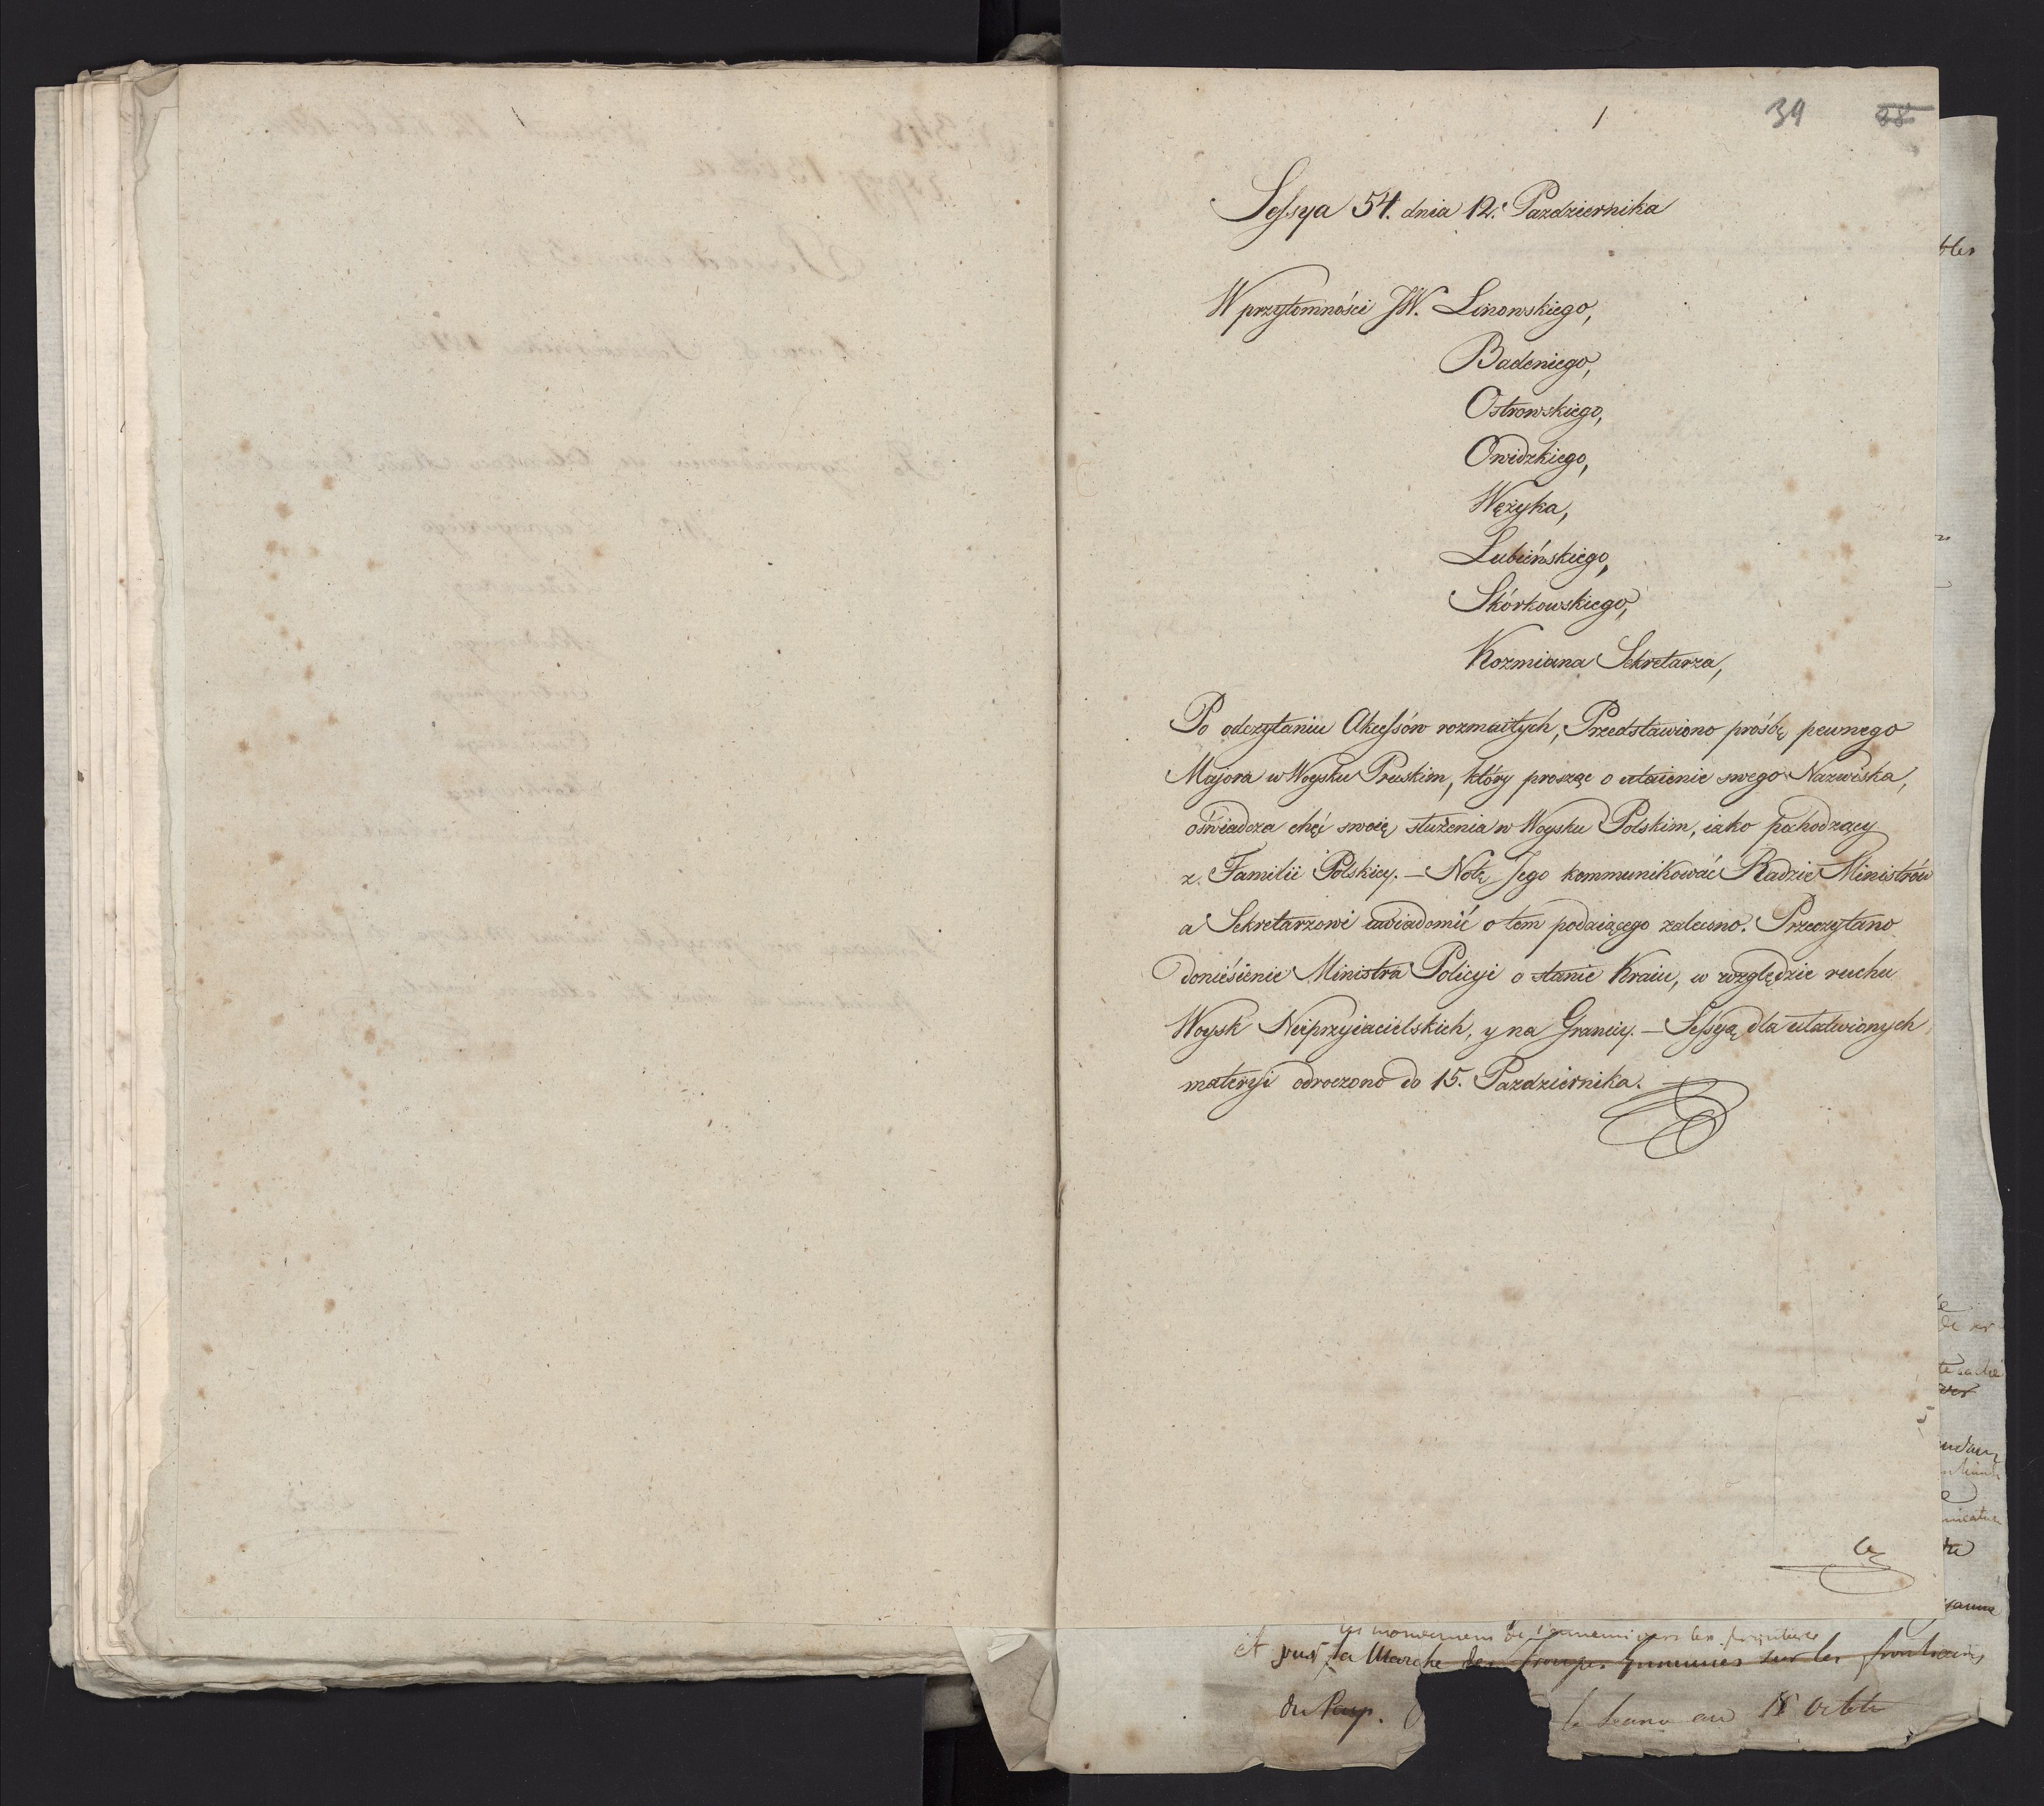 39 38
Sessya 54. dnia 12. Pazdziernika
W przytomności JW. Linowskiego,
Badeniego,
Ostrowskiego,
Owidzkiego,
Wężyka,
Lubińskiego,
Skórkowskiego,
Kozmiana Sekretarza,
Po odczytaniu Akcessów rozmaitych, Przedstawiono prośbę pewnego
Majora w Woysku Pruskim, który prosząc o utaienie swego Nazwiska,
oświadcza chęć swoię służenia w Woysku Polskim, iako pochodzący
z Familii Polskiey. — Notę Jego kommunikować Radzie Ministrów
a Sekretarzowi uwiadomić o tem podaiącego zalecono. Przeczytano
doniesienie Ministra Policyi o stanie Kraiu, w względzie ruchu
Woysk Nieprzyiacielskich, y na Granicy. — Sessyą dla ułatwionych
materyi odroczono do 15. Pazdziernika.
mouvemens de l'ennemi vers les frontieres
et sur la Marche des troupes sur les frontieres
du Pays. la seance au 15 Octbre